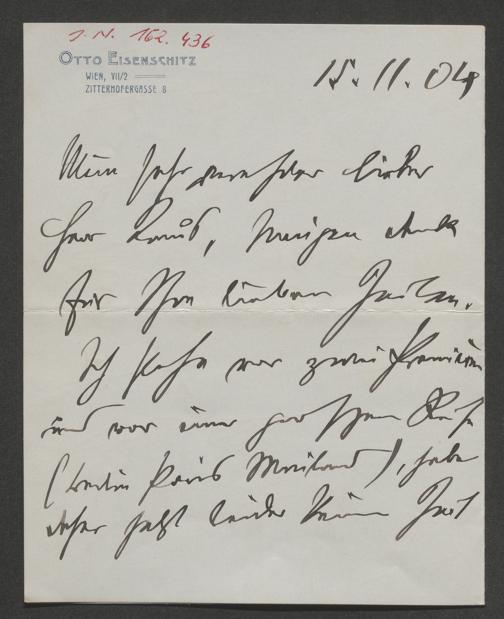 I.N. 162.436
OTTO EISENSCHITZ
WIEN, VII/2
ZITTERHOFERGASSE 8
15.11.04
Mein sehr verehrter lieber
Herr Kraus, innigen Dank
für Ihre lieben Zeilen.
Ich stehe vor zwei Premièren
und vor einer großen Reise
(Berlin Paris Mailand), habe
daher jetzt leider keine Zeit